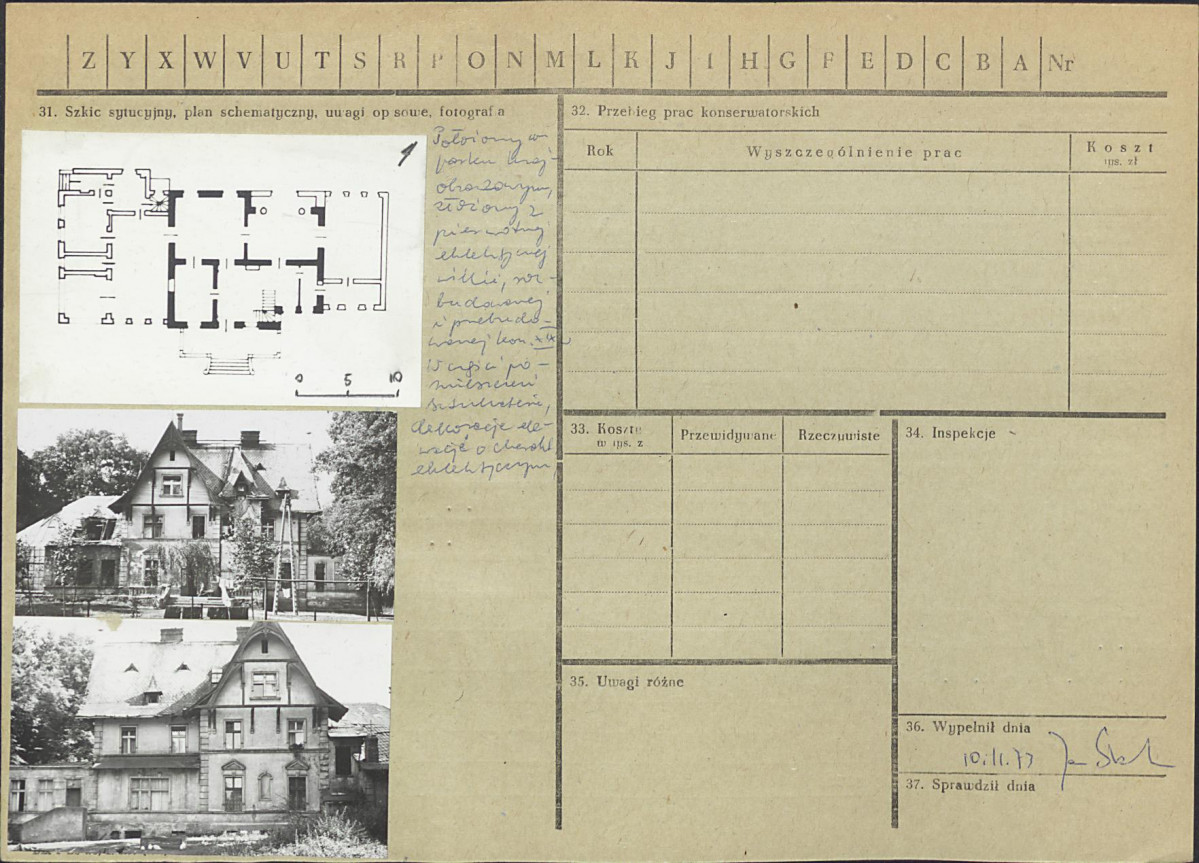 Z Y X W V U T S R P O N M L K J I H G F E D C B A Nr
31. Szkic sytucyjny, plan schematyczny, uwagi opisowe, fotografia
1
0 5 10
Położony w
parku kraj-
obrazowym,
złożony z
pierwotnej
eklektycznej
willi, roz-
budowanej
i przebudo-
wanej kon. XIX w
W części po-
mieszczeń
dekoracje ele-
wacji o charakt.
eklektycznym
32. Przebieg prac konserwatorskich
Rok
Wyszczególnienie prac
Koszt
tys. zł
33. Koszty
w tys. z
Przewidywane
Rzeczywiste
34. Inspekcje
35. Uwagi różne
36. Wypełnił dnia
10.11.77
37. Sprawdził dnia